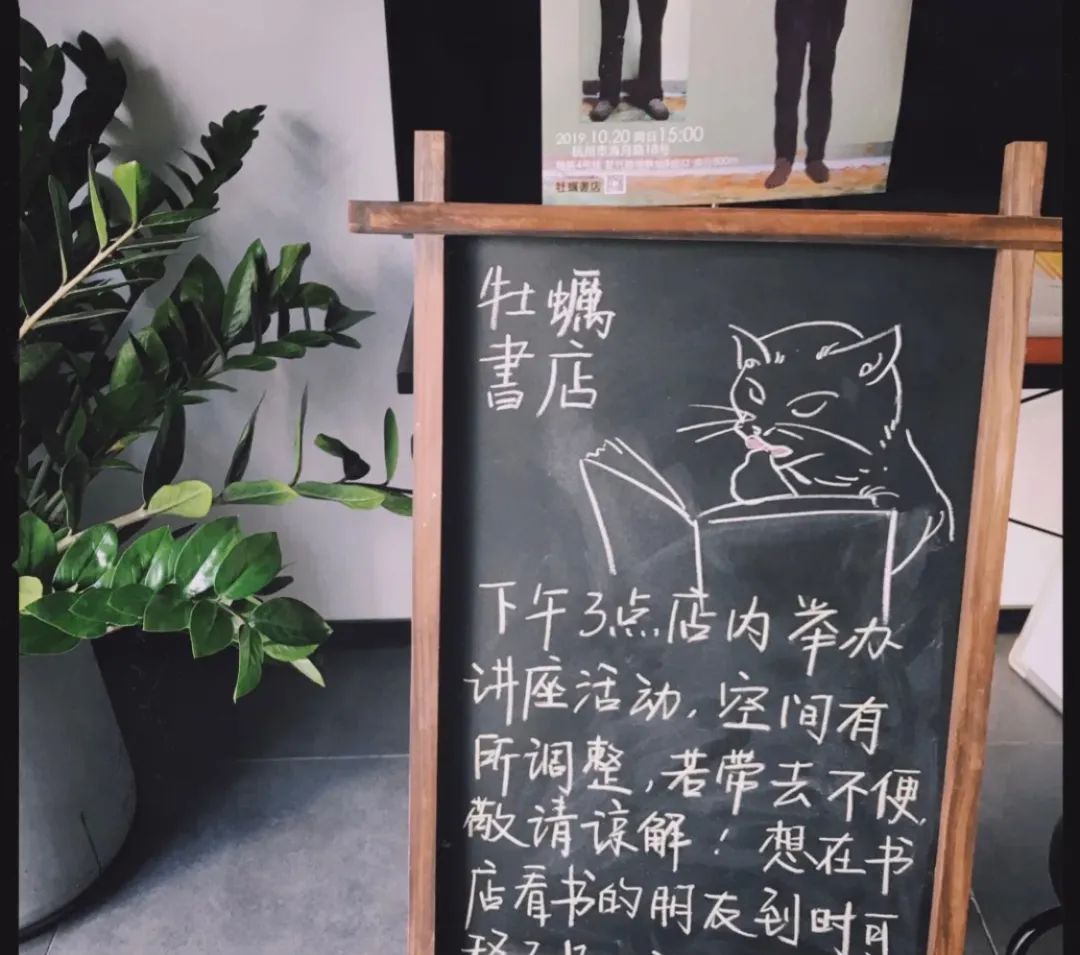 2019.10.20 周日 15:00
杭州市海月路18号
牡蠣書店
牡蠣
書店
下午3点店内举办
讲座活动，空间有
所调整，若带去不便，
敬请谅解！想在书
店看书的朋友到时可